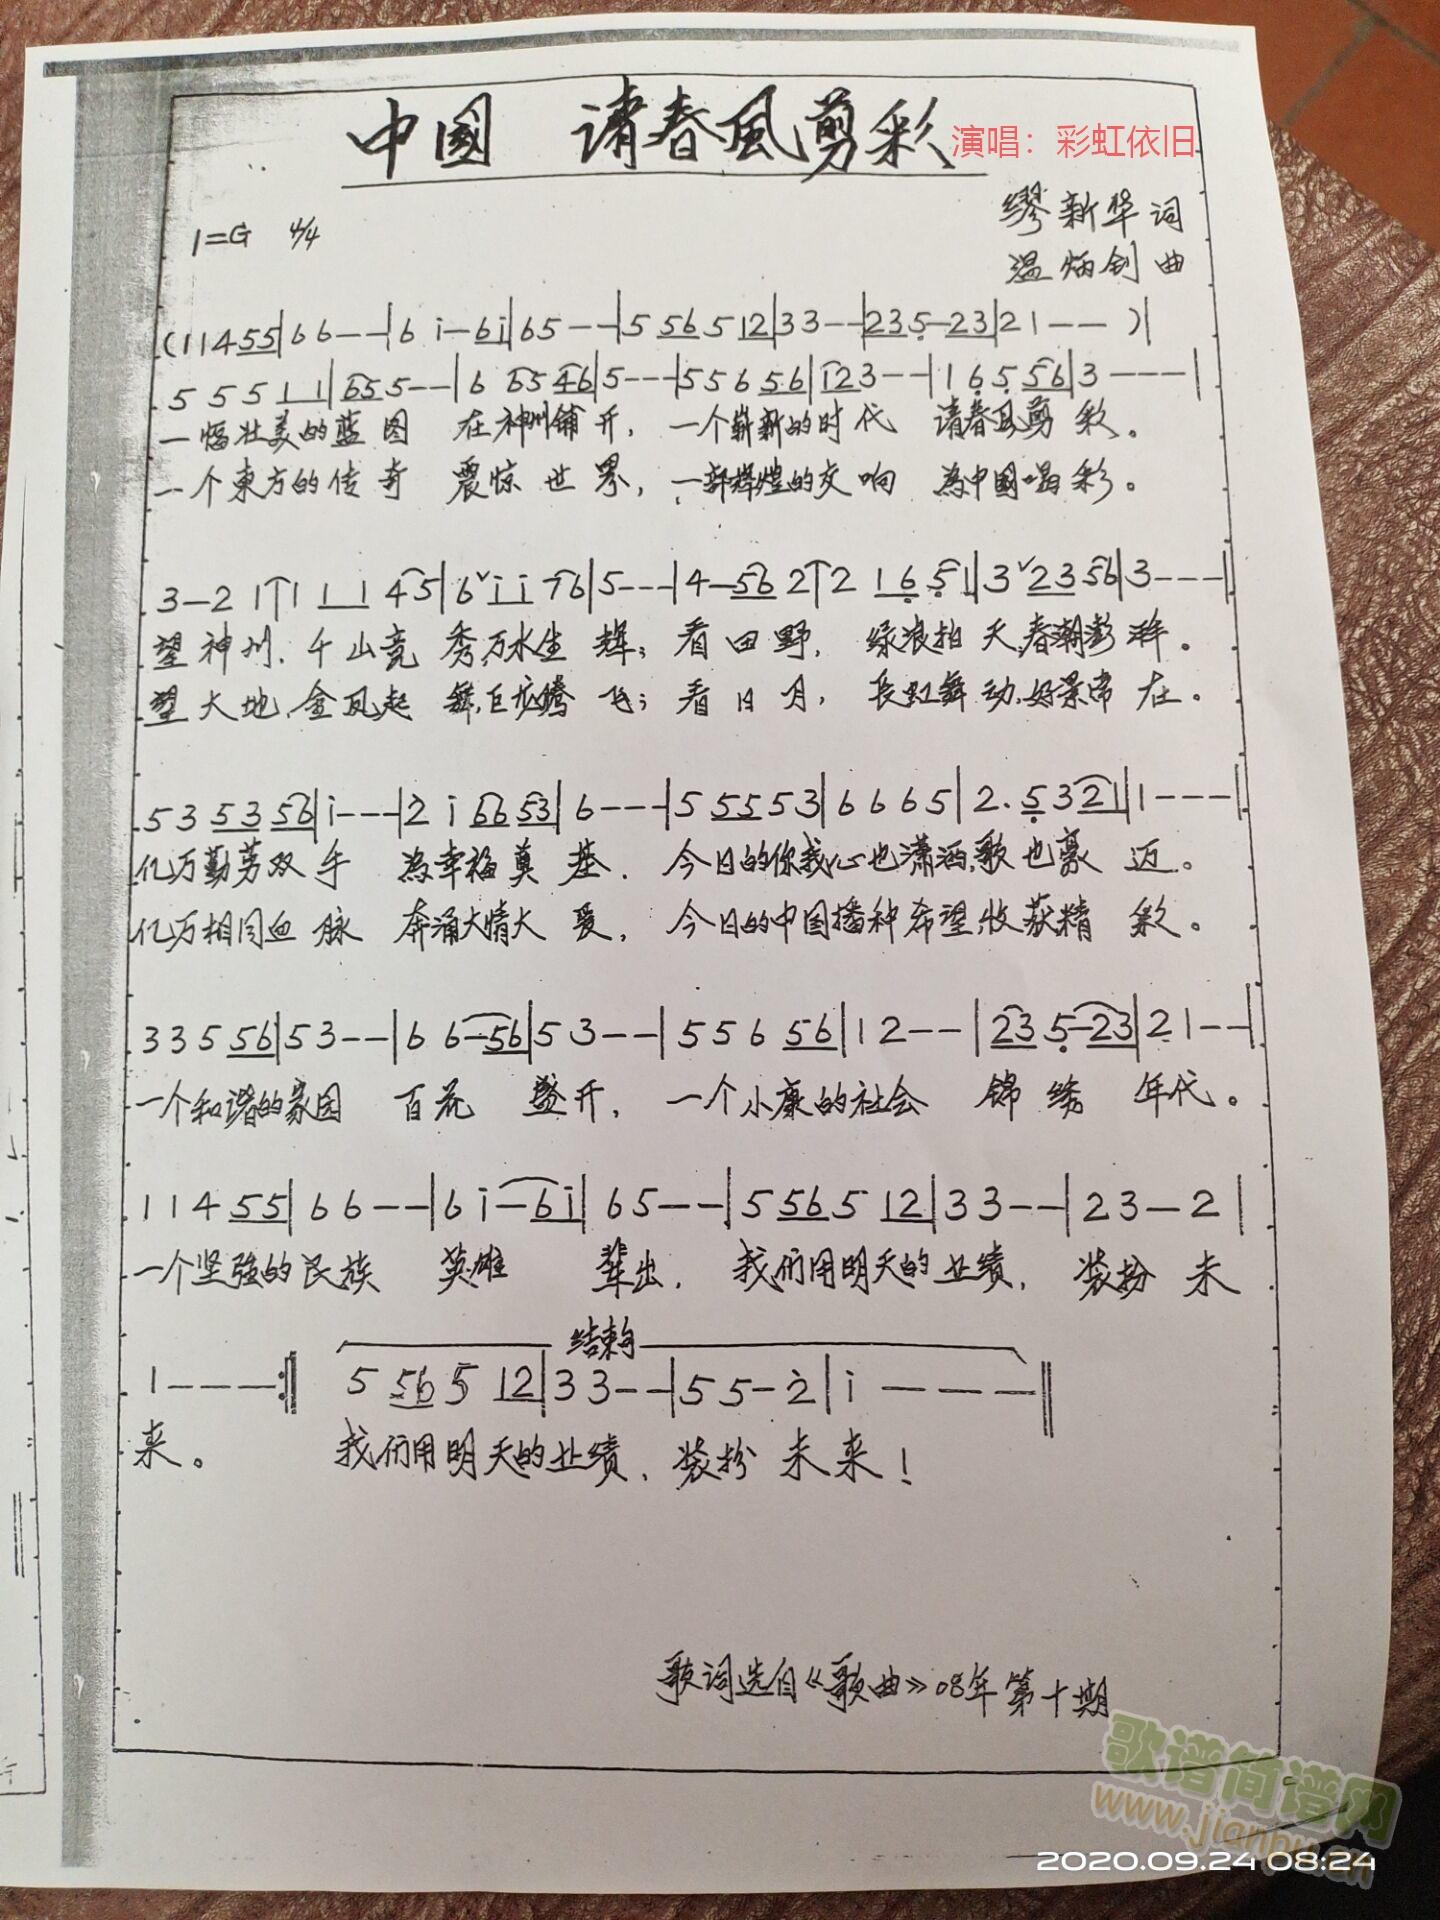 中國 请春風剪彩 演唱：彩虹依旧
缪新华词
1=G 4/4
温炳创曲
(1 1 4 55|6 6 - -|6 i - 6i|6 5 - -|5 56 5 12|3 3 - -|23 5 - 23|2 1 - - )|
5 5 5 1 1|65 5 - -|6 65 46|5 - - -|5 5 6 56|123 - -|1 6 5 56|3 - - -|
一幅壮美的蓝图 在神州铺开，一个崭新的时代 请春风剪彩。
一个東方的传奇 震惊世界，一部辉煌的交响 為中國喝彩。
3 - 2 1|1 11 45|6 ii 76|5 - - -|4 - 56 2|2 16 51|3 23 56|3 - - -|
望神州，千山竞秀，万水生辉；看田野，绿浪拍天，春潮澎湃。
望大地，金凤起舞，巨龙腾飞；看日月，长虹舞动，好景常在。
5 3 53 56|i - - -|2 i 66 53|6 - - -|5 55 5 3|6 6 6 5|2. 5 3 21|1 - - -|
亿万勤劳双手 為幸福奠基，今日的你我心也潇洒，歌也豪迈。
亿万相同血脉 奔涌大情大爱，今日的中国播种希望，收获精彩。
3 3 5 56|5 3 - -|6 6 - 56|5 3 - -|5 5 6 56|1 2 - -|23 5 - 23|2 1 - -|
一个和谐的家园 百花盛开，一个小康的社会 锦绣年代。
1 1 4 55|6 6 - -|6 i - 6i|6 5 - -|5 56 5 12|3 3 - -|2 3 - 2|
一个坚强的民族 英雄辈出，我们用明天的业绩，装扮未
结束句
1 - - - :‖ 5 56 5 12|3 3 - -|5 5 - 2|i - - - -‖
来。 我们用明天的业绩，装扮未来！
歌词选自《歌曲》08年第十期
歌谱简谱网
www.jianpu.cn
2020.09.24 08:24